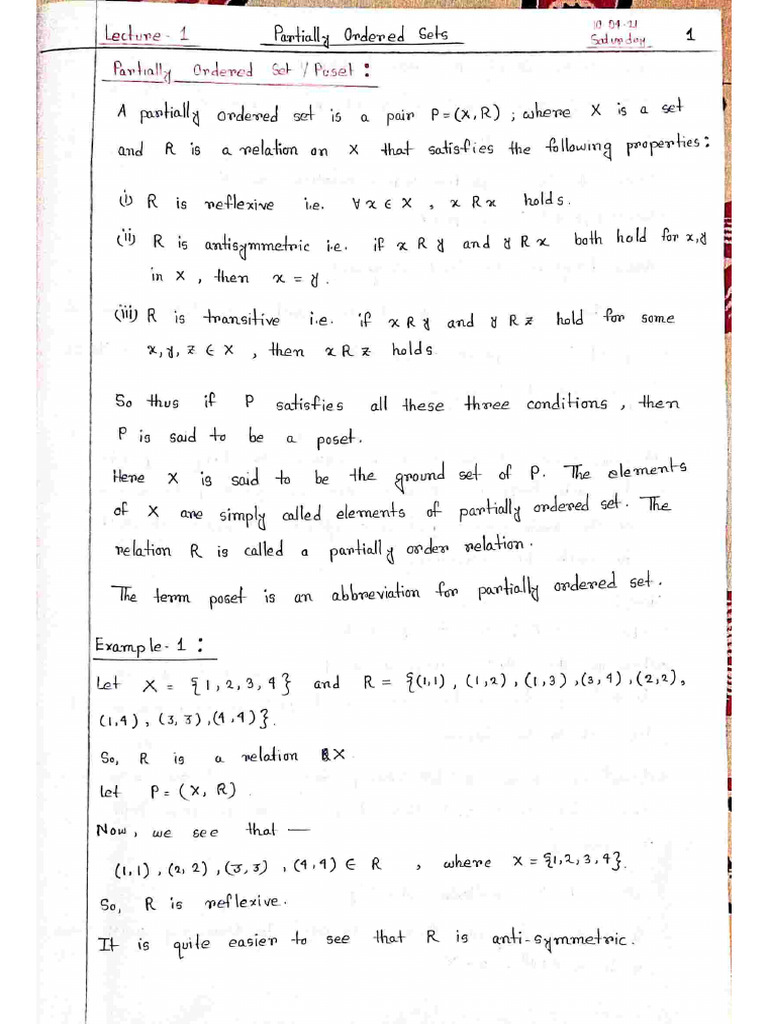 Lecture - 1 Partially Ordered Sets 10.04.21 Saturday 1
Partially Ordered Set / Poset :
A partially ordered set is a pair P=(X,R) ; where X is a set
and R is a relation on X that satisfies the following properties:
(i) R is reflexive i.e. ∀ x ∈ X , x R x holds.
(ii) R is antisymmetric i.e. if x R y and y R x both hold for x,y
in X , then x = y.
(iii) R is transitive i.e. if x R y and y R z hold for some
x, y, z ∈ X , then x R z holds.
So thus if P satisfies all these three conditions , then
P is said to be a poset.
Here X is said to be the ground set of P. The elements
of X are simply called elements of partially ordered set. The
relation R is called a partially order relation.
The term poset is an abbreviation for partially ordered set.
Example - 1 :
Let X = {1, 2, 3, 4} and R = {(1,1) , (1,2) , (1,3) , (3,4) , (2,2),
(1,4) , (3,3) , (4,4)}.
So, R is a relation X.
Let P = (X, R)
Now, we see that —
(1,1) , (2,2) , (3,3) , (4,4) ∈ R , where X = {1,2,3,4}.
So, R is reflexive.
It is quite easier to see that R is anti-symmetric.